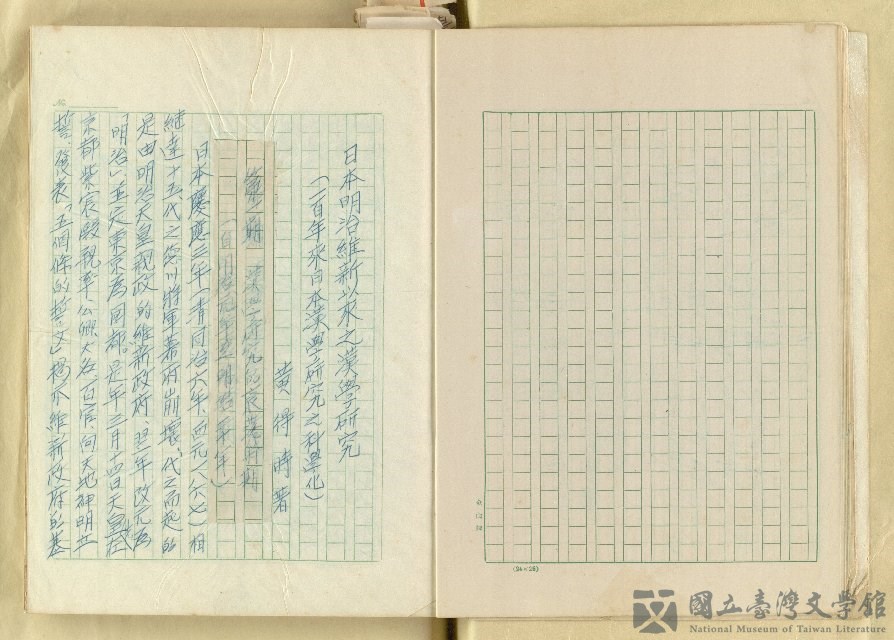 日本明治維新以來之漢學研究
(一百年來日本漢學研究之科學化)
黃得時著
第一期 漢學研究的衰落時期
(自明治元年至明治 年)
日本慶應三年(清同治六年、西元一八六七)相
繼達十五代之德川將軍幕府崩壞、代之而起的
是由明治天皇親政的維新政府、翌年改元為
「明治」並定東京為同都。是年三月十四日天皇在
京都紫宸殿親率公卿大名、百官、向天地神明立
誓、發表「五個條的誓文」揭示維新政府的基
(24×25)
國立臺灣文學館
National Museum of Taiwan Literature